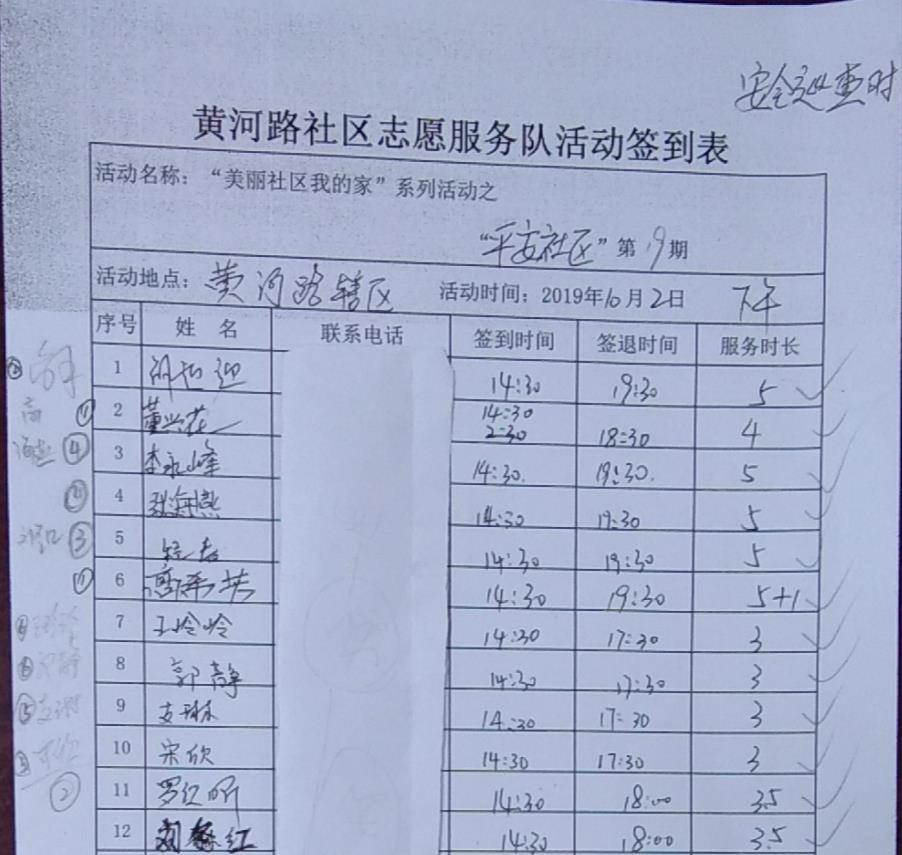 安全巡查时
黄河路社区志愿服务队活动签到表
活动名称：“美丽社区我的家”系列活动之
“平安社区”第19期
活动地点：黄河路辖区 活动时间：2019年10月2日 下午
序号 姓 名 联系电话 签到时间 签退时间 服务时长
1 迎 14:30 19:30 5
2 董兴花 14:30 2:30 18:30 4
3 李永峰 14:30. 19:30. 5
4 张海燕 14:30 19:30 5
5 14:30 19:30 5
6 14:30 19:30 5+1
7 王玲玲 14:30 17:30 3
8 郭静 14:30 17:30 3
9 支琳 14:30 17:30 3
10 宋欣 14:30 17:30 3
11 罗红昕 14:30 18:00 3.5
12 红 14:30 18:00 3.5